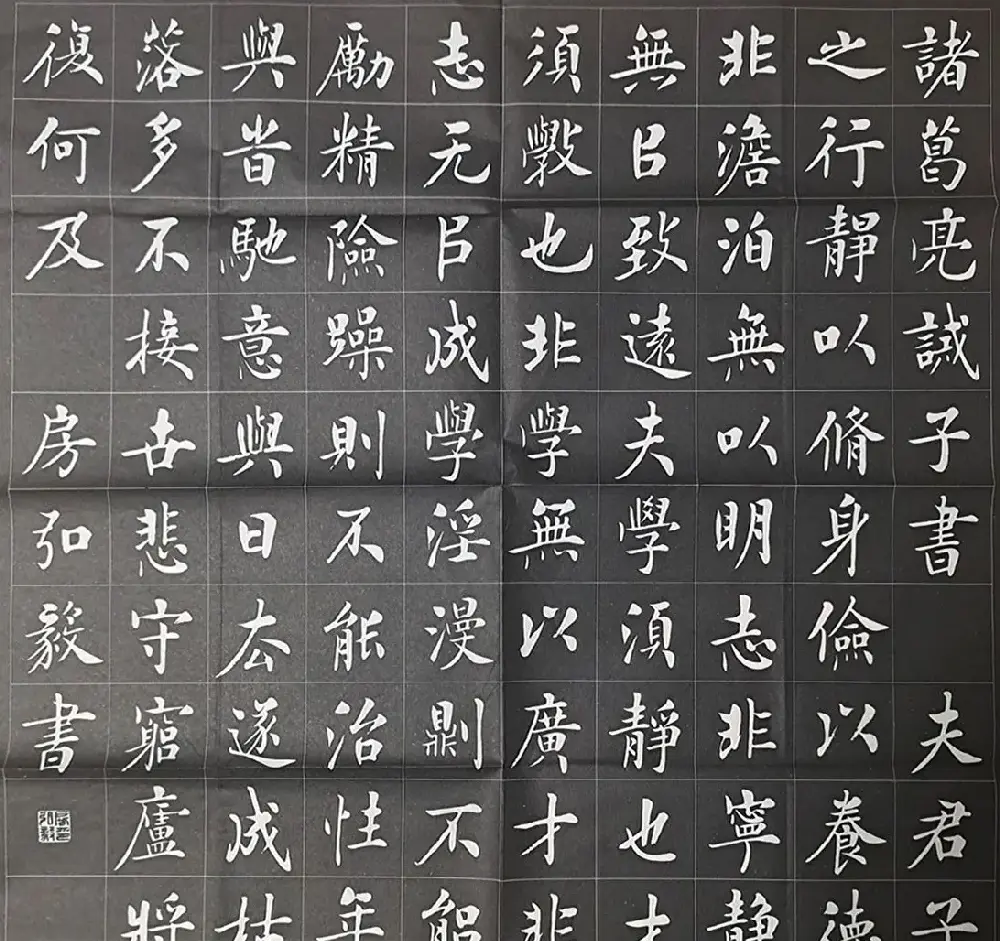 諸葛亮誡子書 夫君子
之行靜以脩身儉以養德
非澹泊無以明志非寧静
無㠯致遠夫學須靜也才
須斅也非學無以廣才非
志无㠯成學淫漫則不能
勵精險躁則不能治性年
與旹馳意與日去遂成枯
落多不接世悲守窮廬將
復何及 房弘毅書